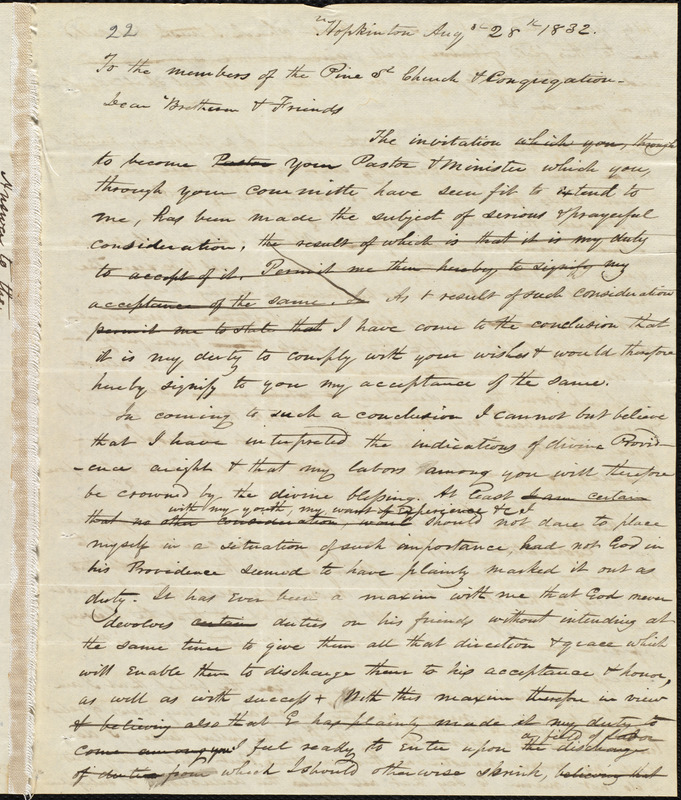 22
Hopkinton Aug st 28th 1832.
To the members of the Pine St Church & Congregation
Dear Brethern & Friends
The invitation which you, through
to become Pastor your Pastor & Minister which you,
through your committe have seen fit to extend to
me, has been made the subject of serious & prayerful
consideration, the result of which is that it is my duty
to accept of it. Permit me then hereby to signify my
acceptance of the same. As & result of such consideration
permit me to state that I have come to the conclusion that
it is my duty to comply with your wishes & would therefore
hereby signify to you my acceptance of the same.
In coming to such a conclusion I cannot but believe
that I have interpreted the indications of divine Provid-
-ence aright & that my labors among you will therefore
be crowned by the divine blessing. At least I am certain
with my youth, my want of experience &c I
that no other consideration, would should not dare to place
myself in a situation of such importance, had not God in
his Providence seemed to have plainly marked it out as
duty. It has ever been a maxim with me that God never
devolves certain duties on his friends without intending at
the same time to give them all that direction & grace which
will enable them to discharge them to his acceptance & honor,
as well as with success + With this maxim therefore in view
& believing also that he has plainly made it my duty to
a field of labor
come among you I feel ready to enter upon the discharge
of duties from which I should otherwise shrink, believing that
Answer to the